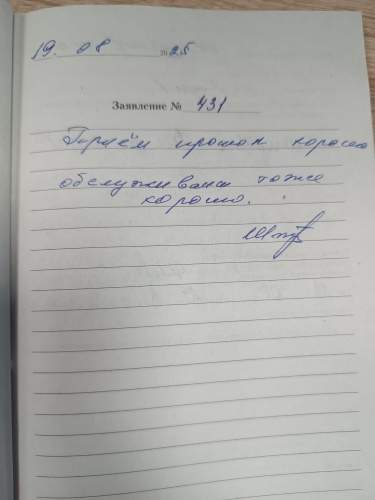 19. 08 20 25
Заявление № 431
Приём прошол хорошо
обслуживании тоже
хорошо.